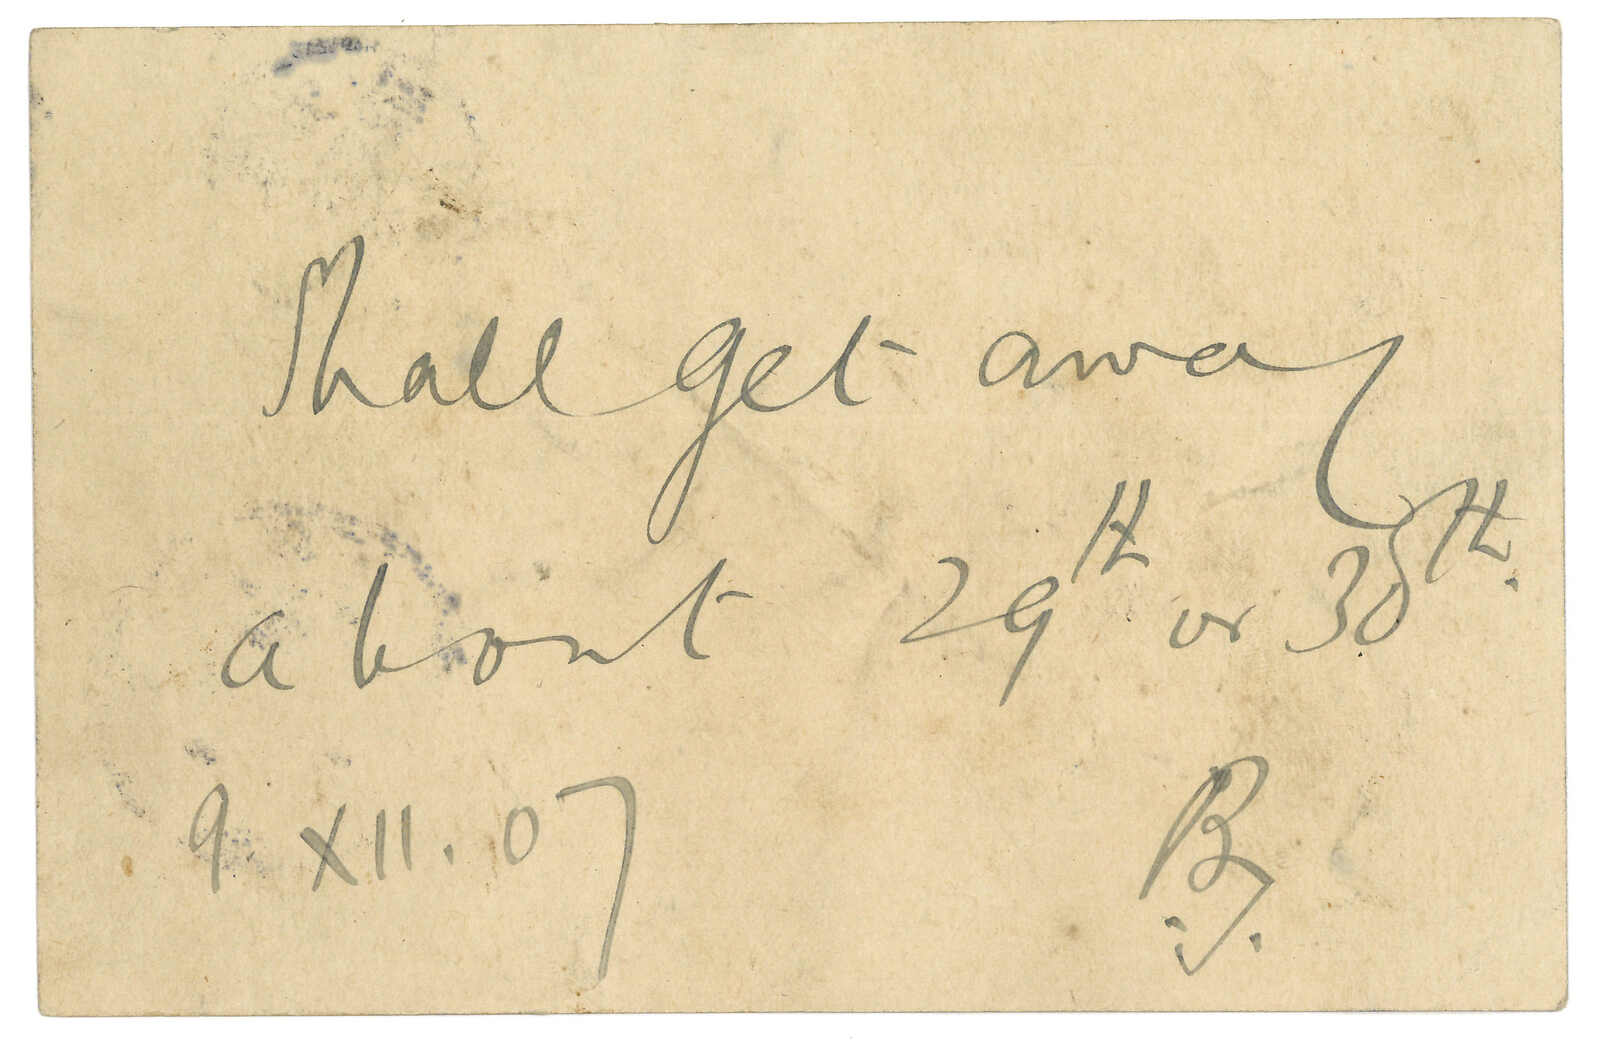 Shall get away
about 29th or 30th.
9. XII. 07
B.